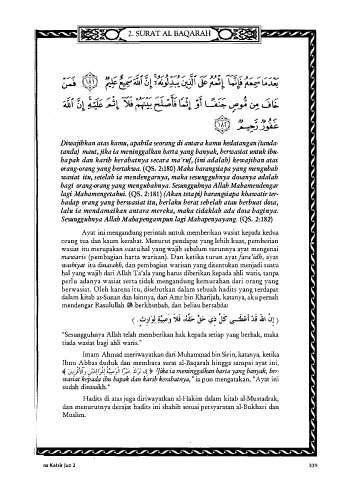 2. SURAT AL BAQARAH
بَعْدَمَا سَمِعَهُ فَإِنَّمَا إِثْمُهُ عَلَى الَّذِينَ يُبَدِّلُونَهُ إِنَّ اللَّهَ سَمِيعٌ عَلِيمٌ ﴿١٨١﴾ فَمَنْ
خَافَ مِن مُّوصٍ جَنَفًا أَوْ إِثْمًا فَأَصْلَحَ بَيْنَهُمْ فَلَا إِثْمَ عَلَيْهِ إِنَّ اللَّهَ
غَفُورٌ رَّحِيمٌ ﴿١٨٢﴾
Diwajibkan atas kamu, apabila seorang di antara kamu kedatangan (tanda-
tanda) maut, jika ia meninggalkan harta yang banyak, berwasiat untuk ibu-
bapak dan karib kerabatnya secara ma'ruf, (ini adalah) kewajiban atas
orang-orang yang bertakwa. (QS. 2:180) Maka barangsiapa yang mengubah
wasiat itu, setelah ia mendengarnya, maka sesungguhnya dosanya adalah
bagi orang-orang yang mengubahnya. Sesungguhnya Allah Mahamendengar
lagi Mahamengetahui. (QS. 2:181) (Akan tetapi) barangsiapa khawatir ter-
hadap orang yang berwasiat itu, berlaku berat sebelah atau berbuat dosa,
lalu ia mendamaikan antara mereka, maka tidaklah ada dosa baginya.
Sesungguhnya Allah Mahapengampun lagi Mahapenyayang. (QS. 2:182)
Ayat ini mengandung perintah untuk memberikan wasiat kepada kedua
orang tua dan kaum kerabat. Menurut pendapat yang lebih kuat, pemberian
wasiat itu merupakan suatu hal yang wajib sebelum turunnya ayat mengenai
mawaris (pembagian harta warisan). Dan ketika turun ayat fara'idh, ayat
washiyat itu dinasakh, dan pembagian warisan yang ditentukan menjadi suatu
hal yang wajib dari Allah Ta'ala yang harus diberikan kepada ahli waris, tanpa
perlu adanya wasiat serta tidak mengandung kemurahan dari orang yang
berwasiat. Oleh karena itu, disebutkan dalam sebuah hadits yang terdapat
dalam kitab as-Sunan dan lainnya, dari Amr bin Kharijah, katanya, aku pernah
mendengar Rasulullah ﷺ berkhutbah, dan beliau bersabda:
( إِنَّ اللهَ قَدْ أَعْطَى كُلَّ ذِي حَقٍّ حَقَّهُ، فَلاَ وَصِيَّةَ لِوَارِثٍ. )
"Sesungguhnya Allah telah memberikan hak kepada setiap yang berhak, maka
tiada wasiat bagi ahli waris."
Imam Ahmad meriwayatkan dari Muhammad bin Sirin, katanya, ketika
Ibnu Abbas duduk dan membaca surat al-Baqarah hingga sampai ayat ini,
﴿ إِن تَرَكَ خَيْرًا الْوَصِيَّةُ لِلْوَالِدَيْنِ وَالْأَقْرَبِينَ ﴾ (Jika ia meninggalkan harta yang banyak, ber-
wasiat kepada ibu bapak dan karib kerabatnya," ia pun mengatakan, "Ayat ini
sudah dinasakh."
Hadits di atas juga diriwayatkan al-Hakim dalam kitab al-Mustadrak,
dan menurutnya derajat hadits ini shahih sesuai persyaratan al-Bukhari dan
Muslim.
nu Katsir Juz 2
339